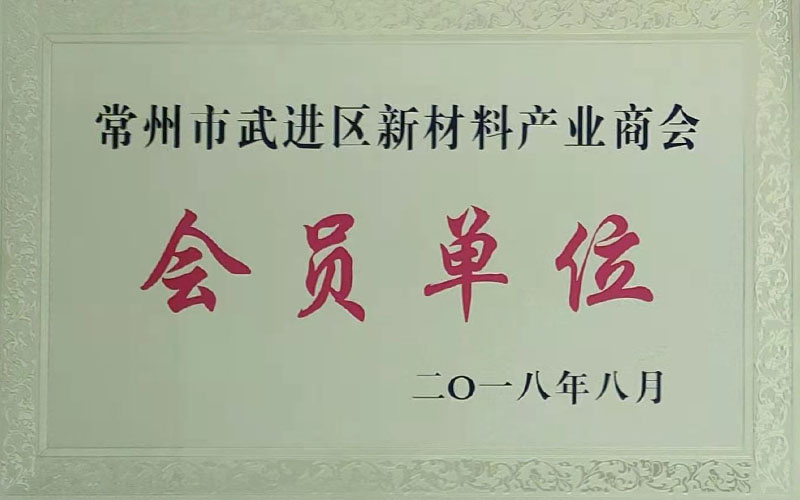 常州市武进区新材料产业商会
会员单位
二O一八年八月